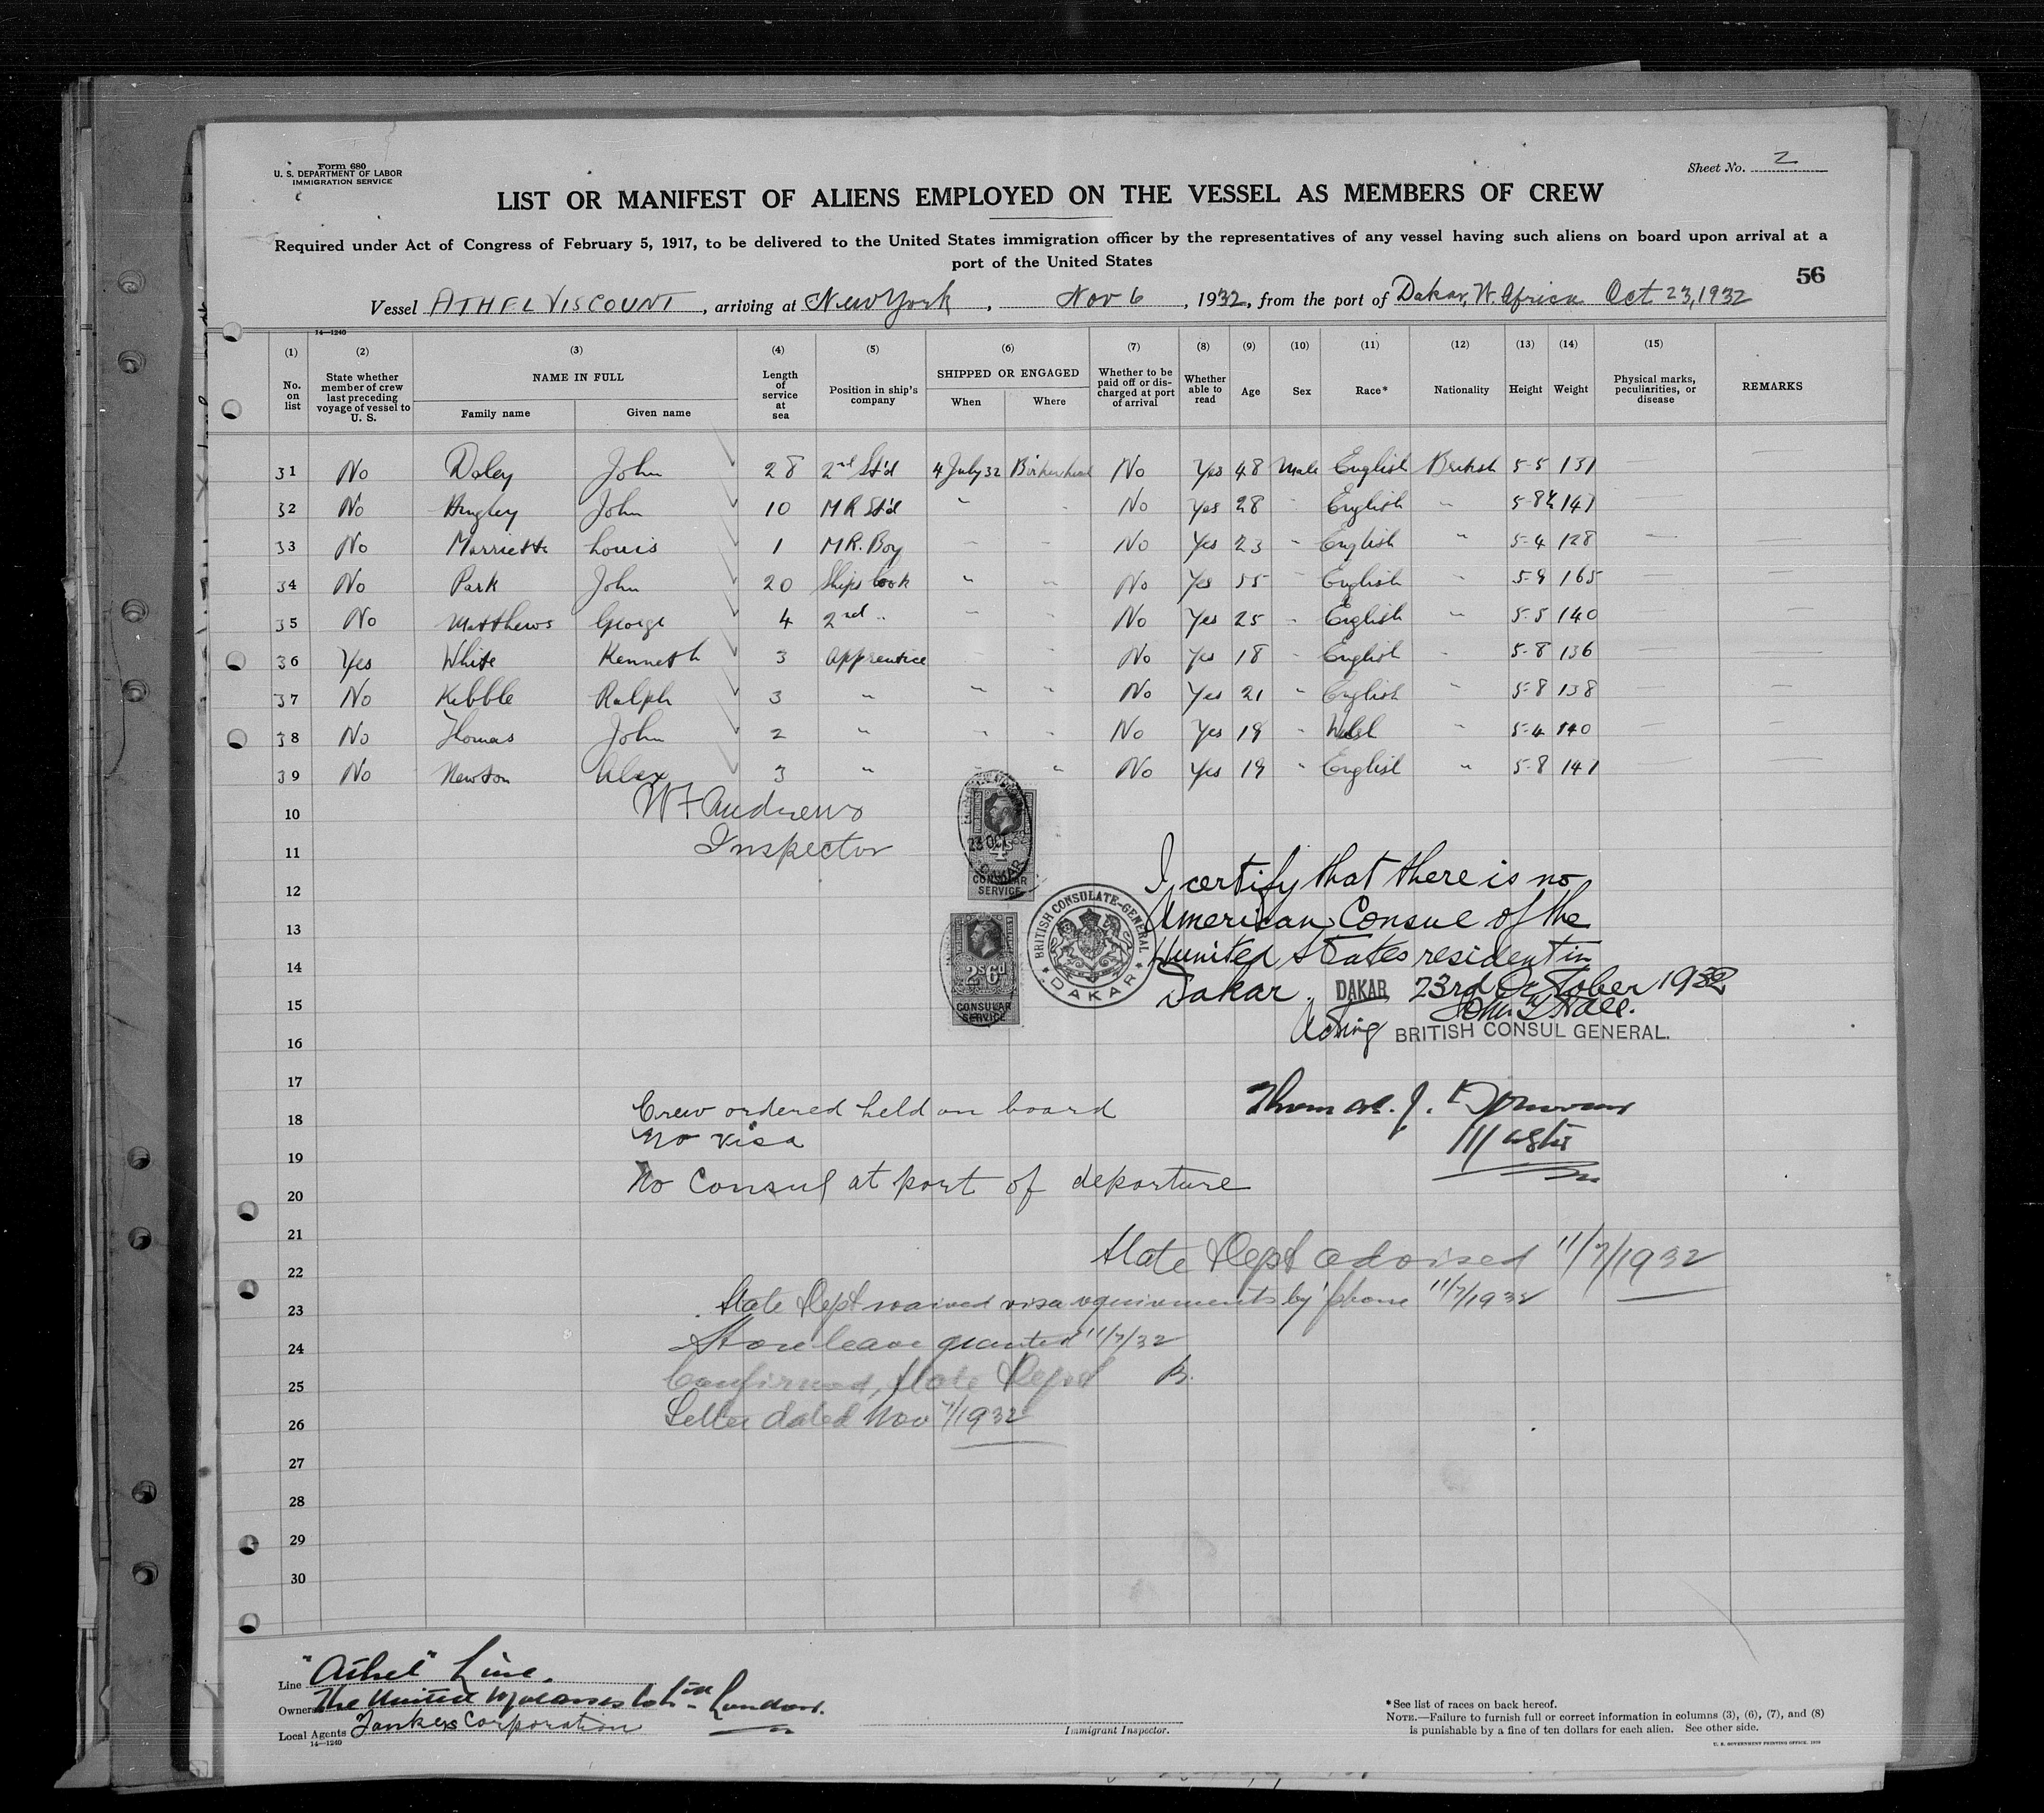 Form 680
U. S. DEPARTMENT OF LABOR
IMMIGRATION SERVICE
Sheet No. 2
LIST OR MANIFEST OF ALIENS EMPLOYED ON THE VESSEL AS MEMBERS OF CREW
Required under Act of Congress of February 5, 1917, to be delivered to the United States immigration officer by the representatives of any vessel having such aliens on board upon arrival at a
port of the United States
56
Vessel ATHELVISCOUNT, arriving at New York, Nov 6, 1932, from the port of Dakar, W. Africa Oct 23, 1932
14—1240
(1) (2) (3) (4) (5) (6) (7) (8) (9) (10) (11) (12) (13) (14) (15)
No. on list
State whether member of crew last preceding voyage of vessel to U. S.
NAME IN FULL
Family name
Given name
Length of service at sea
Position in ship's company
SHIPPED OR ENGAGED
When
Where
Whether to be paid off or discharged at port of arrival
Whether able to read
Age
Sex
Race*
Nationality
Height
Weight
Physical marks, peculiarities, or disease
REMARKS
31 No Daley John 28 2nd St'd 4 July 32 Birkenhead No Yes 48 Male English British 5-5 131
32 No John 10 M R St'd " " No Yes 28 " English " 5-8½ 141
33 No Marriette Louis 1 M R. Boy " " No Yes 23 " English " 5-4 128
34 No Park John 20 Ships Cook " " No Yes 55 " English " 5-9 165
35 No Matthews George 4 2nd " " " No Yes 25 " English " 5-5 140
36 Yes White Kenneth 3 Apprentice " " No Yes 18 " English " 5-8 136
37 No Kibble Ralph 3 " " " No Yes 21 " English " 5-8 138
38 No Thomas John 2 " " " No Yes 19 " Welsh " 5-4 140
39 No Newton Alex 3 " " " No Yes 19 " English " 5-8 141
10 W F Andrews
11 Inspector
12
13
14
15
16
17
18
19
20
21
22
23
24
25
26
27
28
29
30
23 OCT 32
DAKAR
CONSULAR
SERVICE
2s6d
CONSULAR
SERVICE
BRITISH CONSULATE-GENERAL
DAKAR
I certify that there is no
American Consul of the
United States resident in
Dakar. DAKAR 23rd October 1932
Acting BRITISH CONSUL GENERAL.
Thomas. J.
Master
Crew ordered held on board
No visa
No Consul at port of departure
State Dept advised 11/7/1932
State Dept waived visa requirements by phone 11/7/1932
Shore leave granted 11/7/32
Confirmed, State Dept B.
Letter dated Nov 7/1932
Line "Athel" Line.
Owners The United Molasses Co Ltd London.
Local Agents Tankers Corporation
14—1240
Immigrant Inspector.
*See list of races on back hereof.
NOTE.—Failure to furnish full or correct information in columns (3), (6), (7), and (8)
is punishable by a fine of ten dollars for each alien. See other side.
U. S. GOVERNMENT PRINTING OFFICE